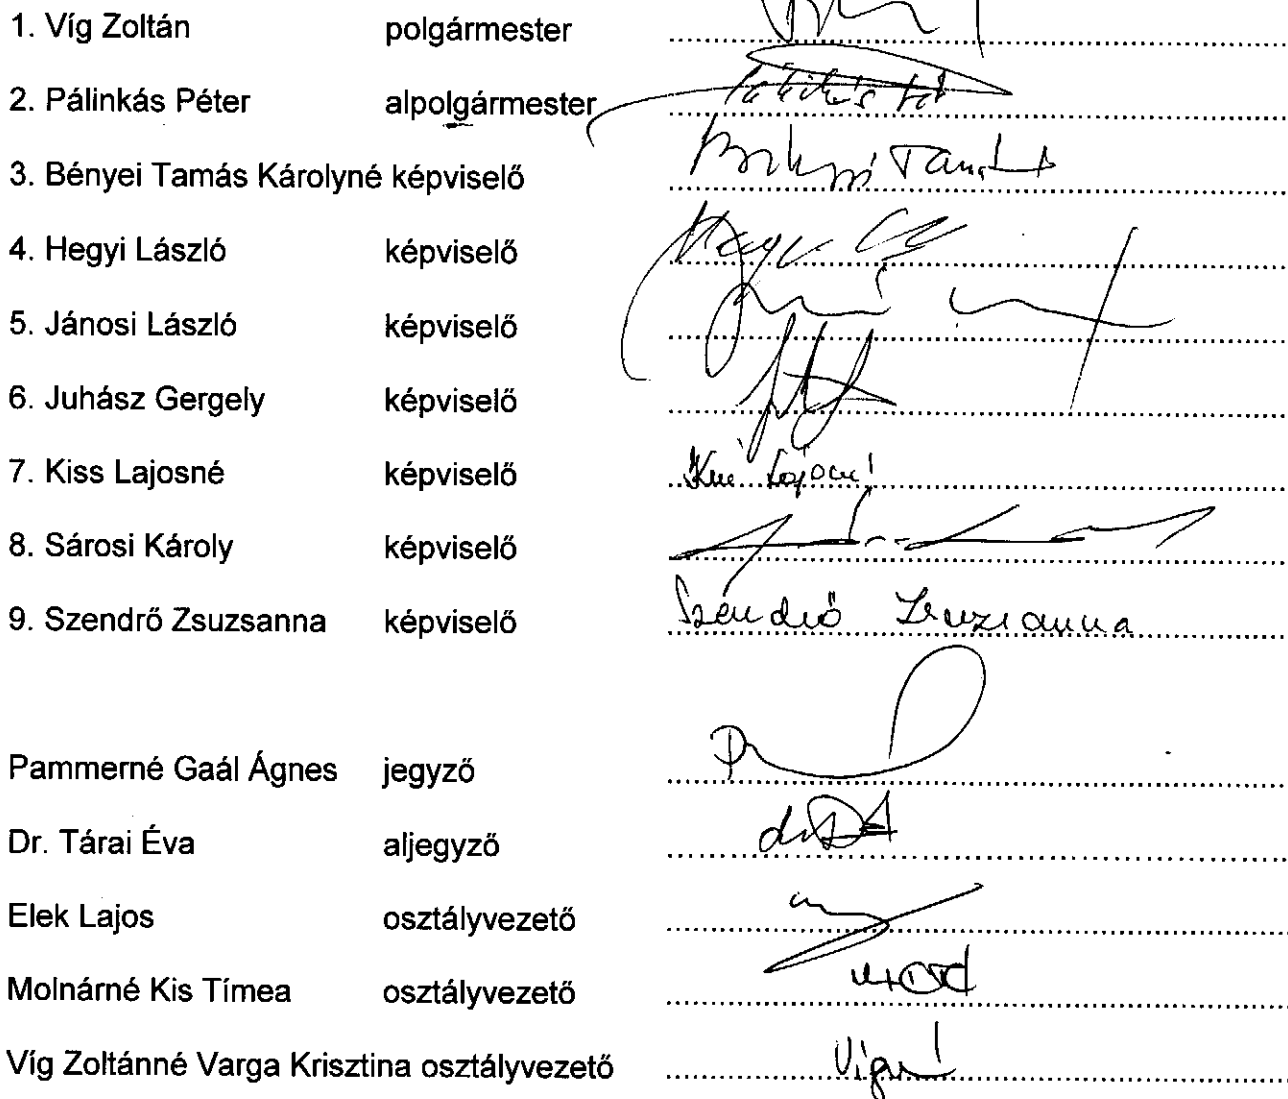 1. Víg Zoltán polgármester
2. Pálinkás Péter alpolgármester
3. Bényei Tamás Károlyné képviselő
4. Hegyi László képviselő
5. Jánosi László képviselő
6. Juhász Gergely képviselő
7. Kiss Lajosné képviselő
8. Sárosi Károly képviselő
9. Szendrő Zsuzsanna képviselő Szendrő Zsuzsanna
Pammerné Gaál Ágnes jegyző
Dr. Tárai Éva aljegyző
Elek Lajos osztályvezető
Molnárné Kis Tímea osztályvezető
Víg Zoltánné Varga Krisztina osztályvezető Vígné